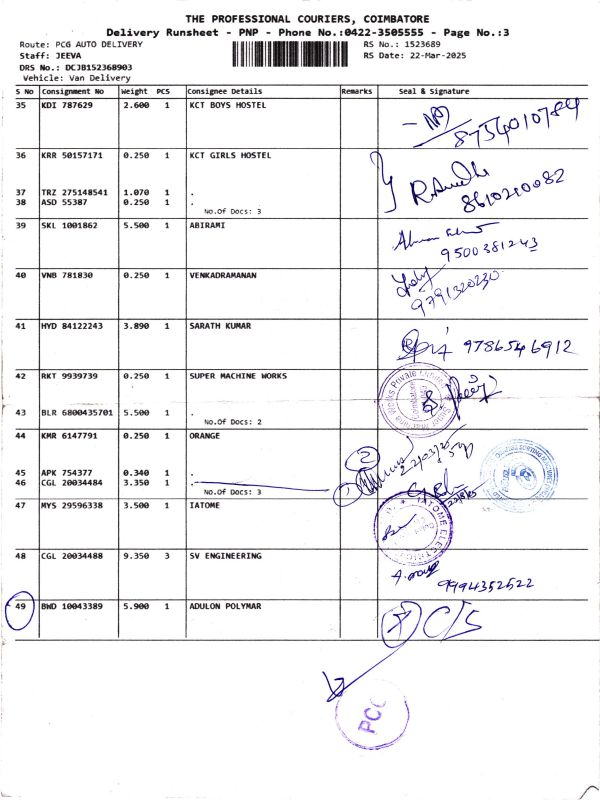 THE PROFESSIONAL COURIERS, COIMBATORE
Delivery Runsheet - PNP - Phone No.:0422-3505555 - Page No.:3
Route: PCG AUTO DELIVERY RS No.: 1523689
Staff: JEEVA RS Date: 22-Mar-2025
DRS No.: DCJB152368903
Vehicle: Van Delivery
S No Consignment No Weight PCS Consignee Details Remarks Seal & Signature
35 KDI 787629 2.600 1 KCT BOYS HOSTEL
8754010784
36 KRR 50157171 0.250 1 KCT GIRLS HOSTEL
37 TRZ 275148541 1.070 1 .
38 ASD 55387 0.250 1 .
8610210082
No.Of Docs: 3
39 SKL 1001862 5.500 1 ABIRAMI
9500381243
40 VNB 781830 0.250 1 VENKADRAMANAN
9791320230
41 HYD 84122243 3.890 1 SARATH KUMAR
9786546912
42 RKT 9939739 0.250 1 SUPER MACHINE WORKS
43 BLR 6800435701 5.500 1 .
No.Of Docs: 2
44 KMR 6147791 0.250 1 ORANGE
2
22/03/25
45 APK 754377 0.340 1 .
46 CGL 20034484 3.350 1 .
1
No.Of Docs: 3
47 MYS 29596338 3.500 1 IATOME
IATOME ELECTRIC
48 CGL 20034488 9.350 3 SV ENGINEERING
9994352522
49 BWD 10043389 5.900 1 ADULON POLYMAR
C/S
PCG